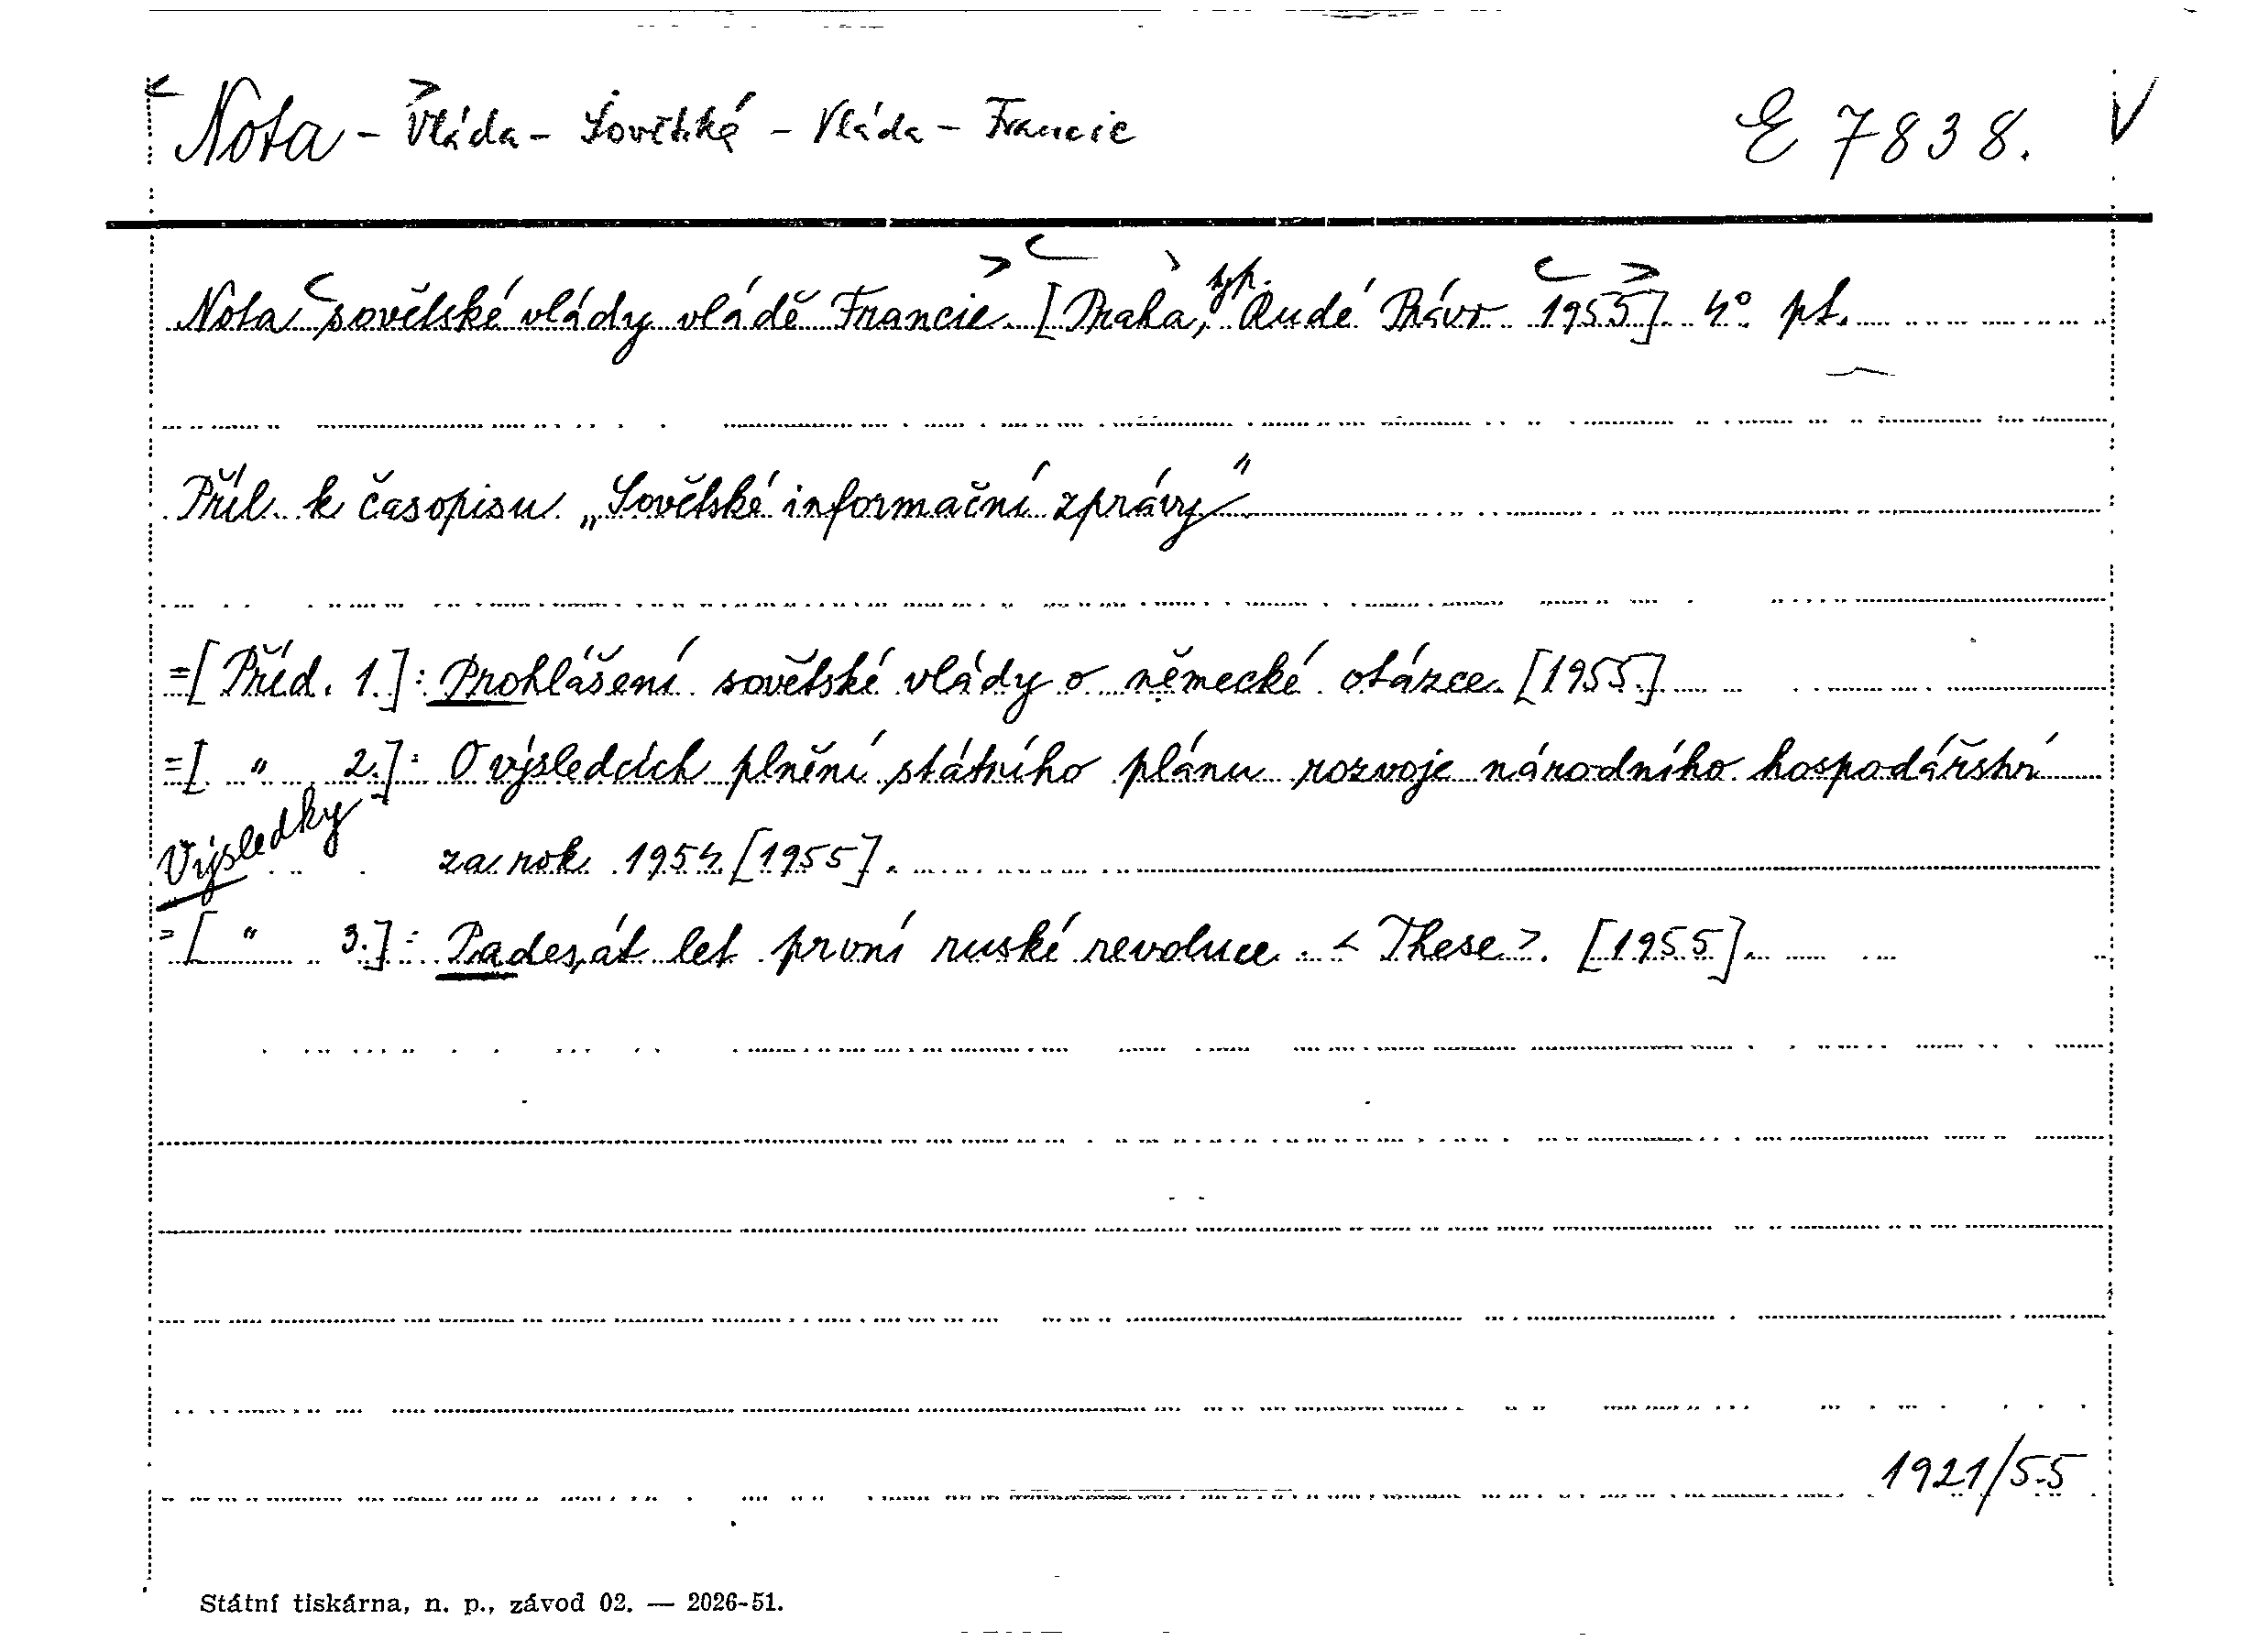 Nota - Vláda - Sovětská - Vláda - Francie E 7838. V
Nota sovětské vlády vládě Francie. [Praha, typ. Rudé Právo 1955]. 4° pt.
Příl. k časopisu „Sovětské informační zprávy"
=[Příd. 1.]: Prohlášení sovětské vlády o německé otázce. [1955.]
=[ " 2.]: O výsledcích plnění státního plánu rozvoje národního hospodářství
Výsledky za rok 1954. [1955].
=[ " 3.]: Padesát let první ruské revoluce. < These >. [1955].
1921/55
Státní tiskárna, n. p., závod 02. — 2026-51.